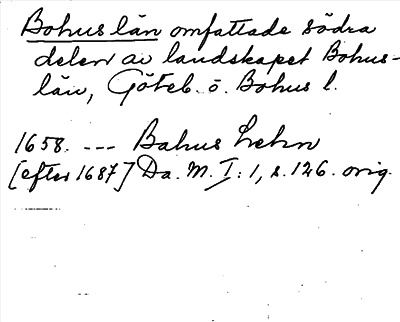 Bohus län omfattade södra
delen av landskapet Bohus-
län, Göteb. o. Bohus l.
1658. --- Bahus Lehn
[efter 1687] Da. M. I: 1, s. 126. orig.